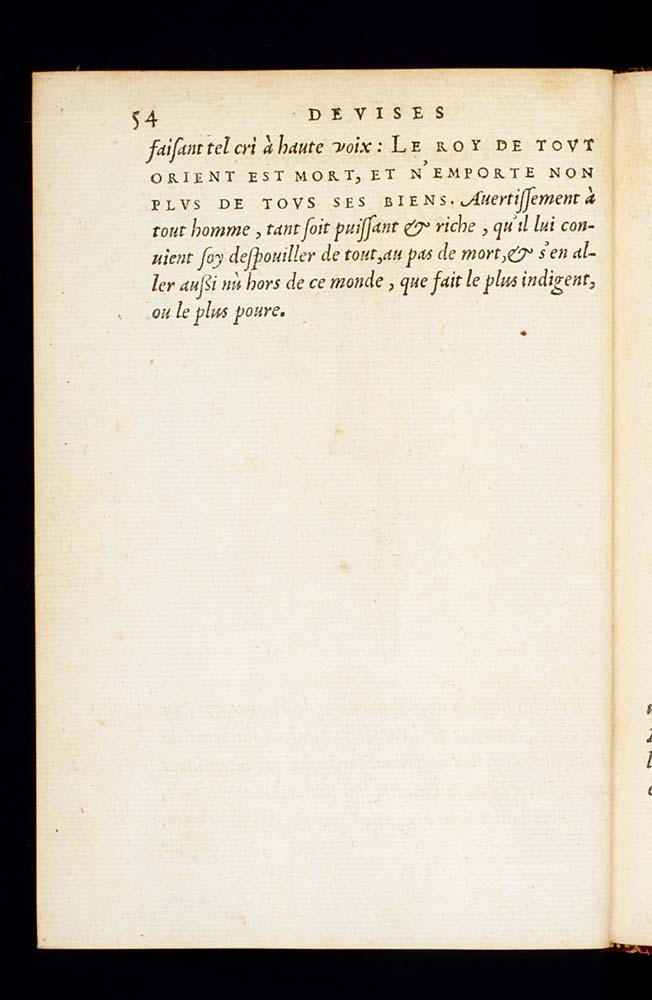 54 DEVISES
faiſant tel cri à haute voix : LE ROY DE TOVT
ORIENT EST MORT, ET N'EMPORTE NON
PLVS DE TOVS SES BIENS. Auertiſſement à
tout homme , tant ſoit puiſſant & riche , qu'il lui con-
uient ſoy deſpouiller de tout,au pas de mort,& s'en al-
ler außi nù hors de ce monde , que fait le plus indigent,
ou le plus poure.